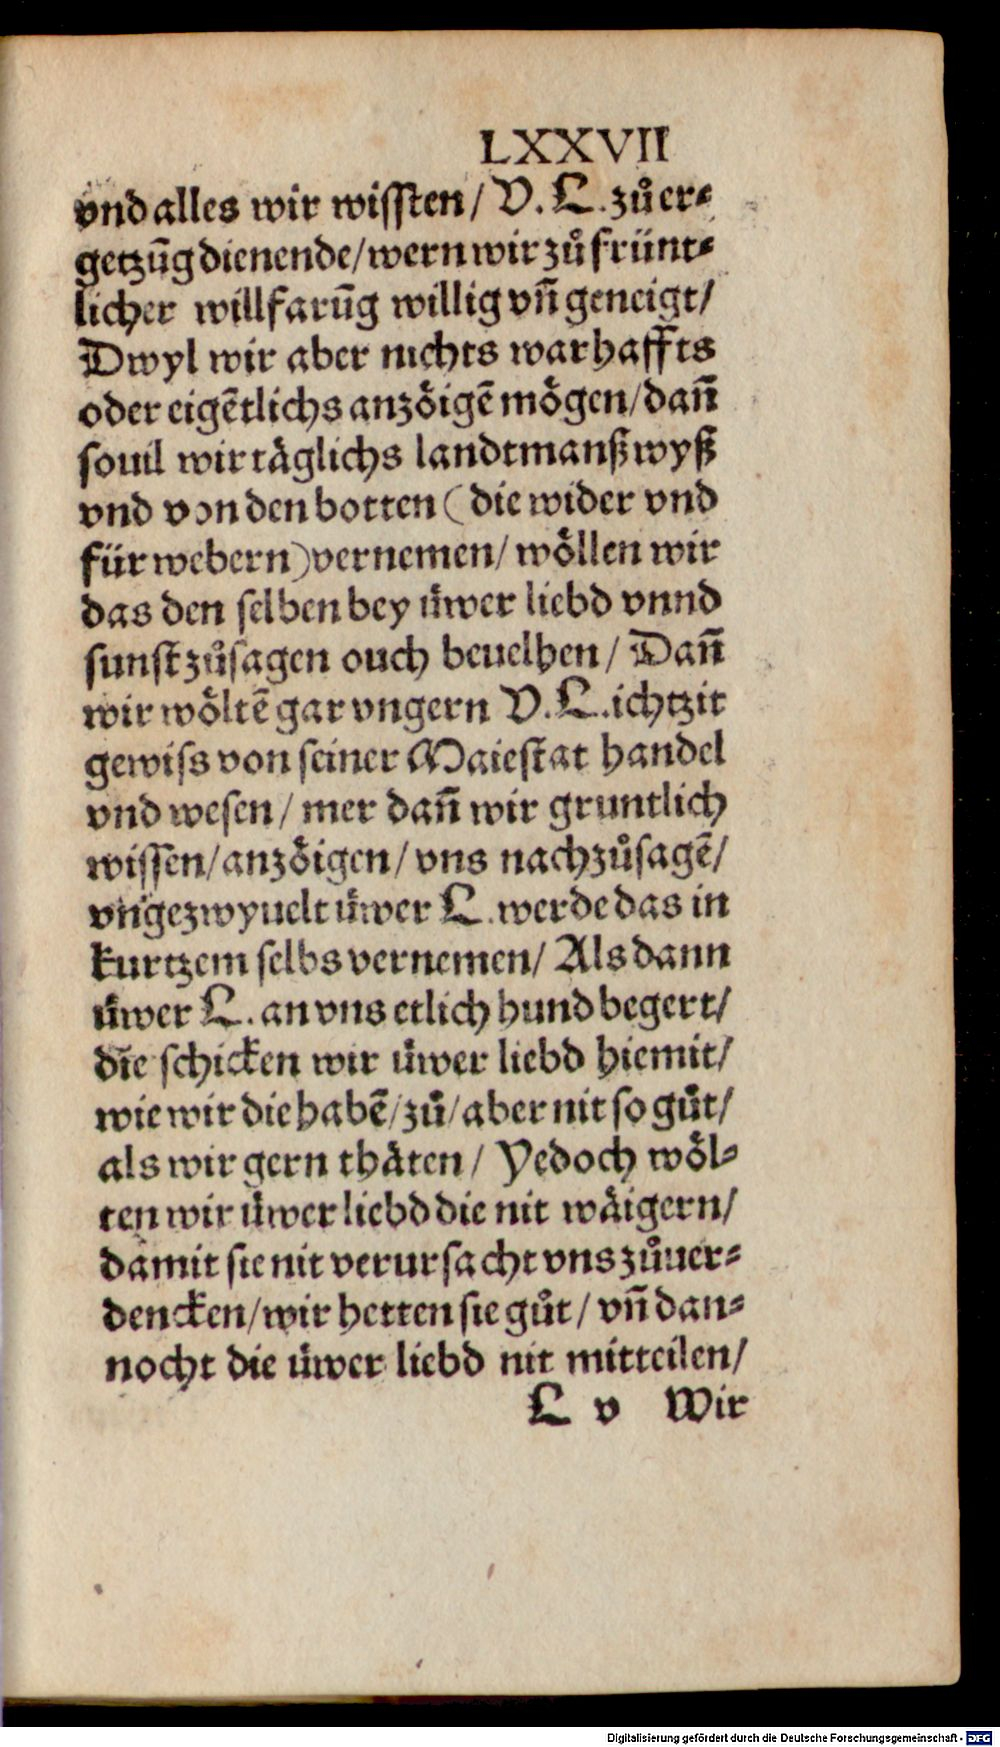 LXXVII
vnd alles wir wissten/ V. L. zů er⸗
getzūg dienende/ wern wir zů frünt⸗
licher willfarūg willig vn̄ geneigt/
Dwyl wir aber nichts warhaffts
oder eigētlichs anzöigē mögen/ dan̄
souil wir täglichs landtmanß wyß
vnd von den botten (die wider vnd
für webern) vernemen/ wöllen wir
das den selben bey üwer liebd vnnd
sunst zůsagen ouch beuelhen/ Dan̄
wir wöltē gar vngern V. L. ichtzit
gewiss von seiner Maiestat handel
vnd wesen/ mer dan̄ wir gruntlich
wissen/ anzöigen/ vns nachzůsagē/
vngezwyuelt üwer L. werde das in
kurtzem selbs vernemen/ Als dann
üwer L. an vns etlich hund begert/
die schicken wir üwer liebd hiemit/
wie wir die habē/ zů/ aber nit so gůt/
als wir gern thäten/ Yedoch wöl⸗
ten wir üwer liebd die nit wäigern/
damit sie nit verursacht vns zůuer⸗
dencken/ wir hetten sie gůt/ vn̄ dan⸗
nocht die üwer liebd nit mitteilen/
L v Wir
Digitalisierung gefördert durch die Deutsche Forschungsgemeinschaft - DFG